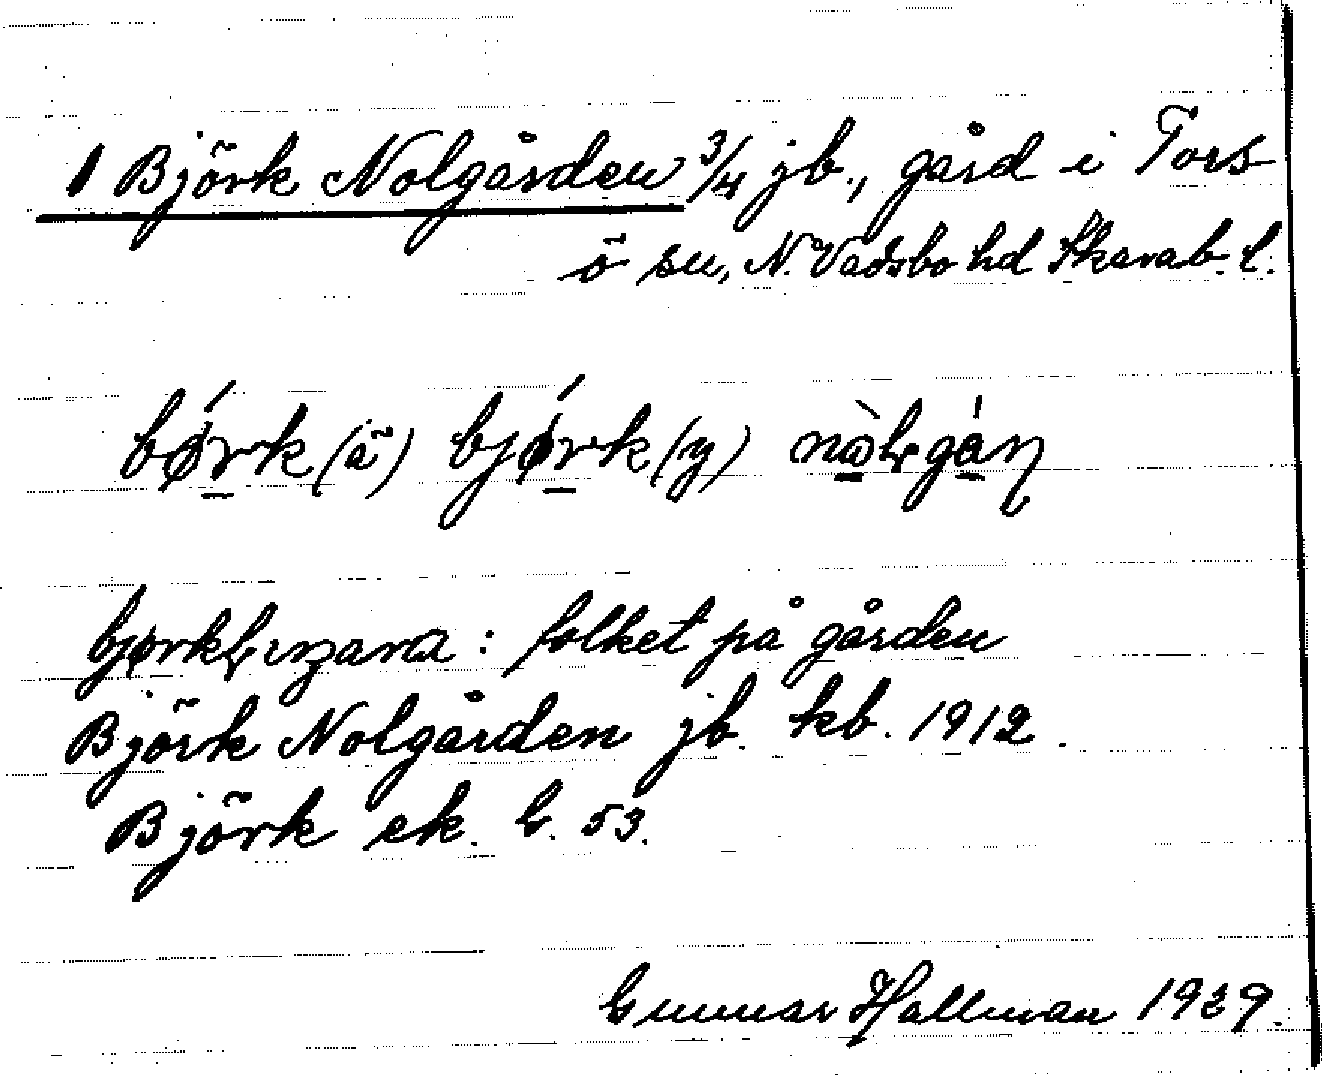 1 Björk Nolgården 3/4 jb., gård i Tors
ö sn, N. Vadsbo hd Skarab. l.
bǿrk (ä) bjǿrk (y) nàlgán
folket på gården
Björk Nolgården jb. kb. 1912.
Björk ek. G. 53.
Gunnar Hallman 1939.